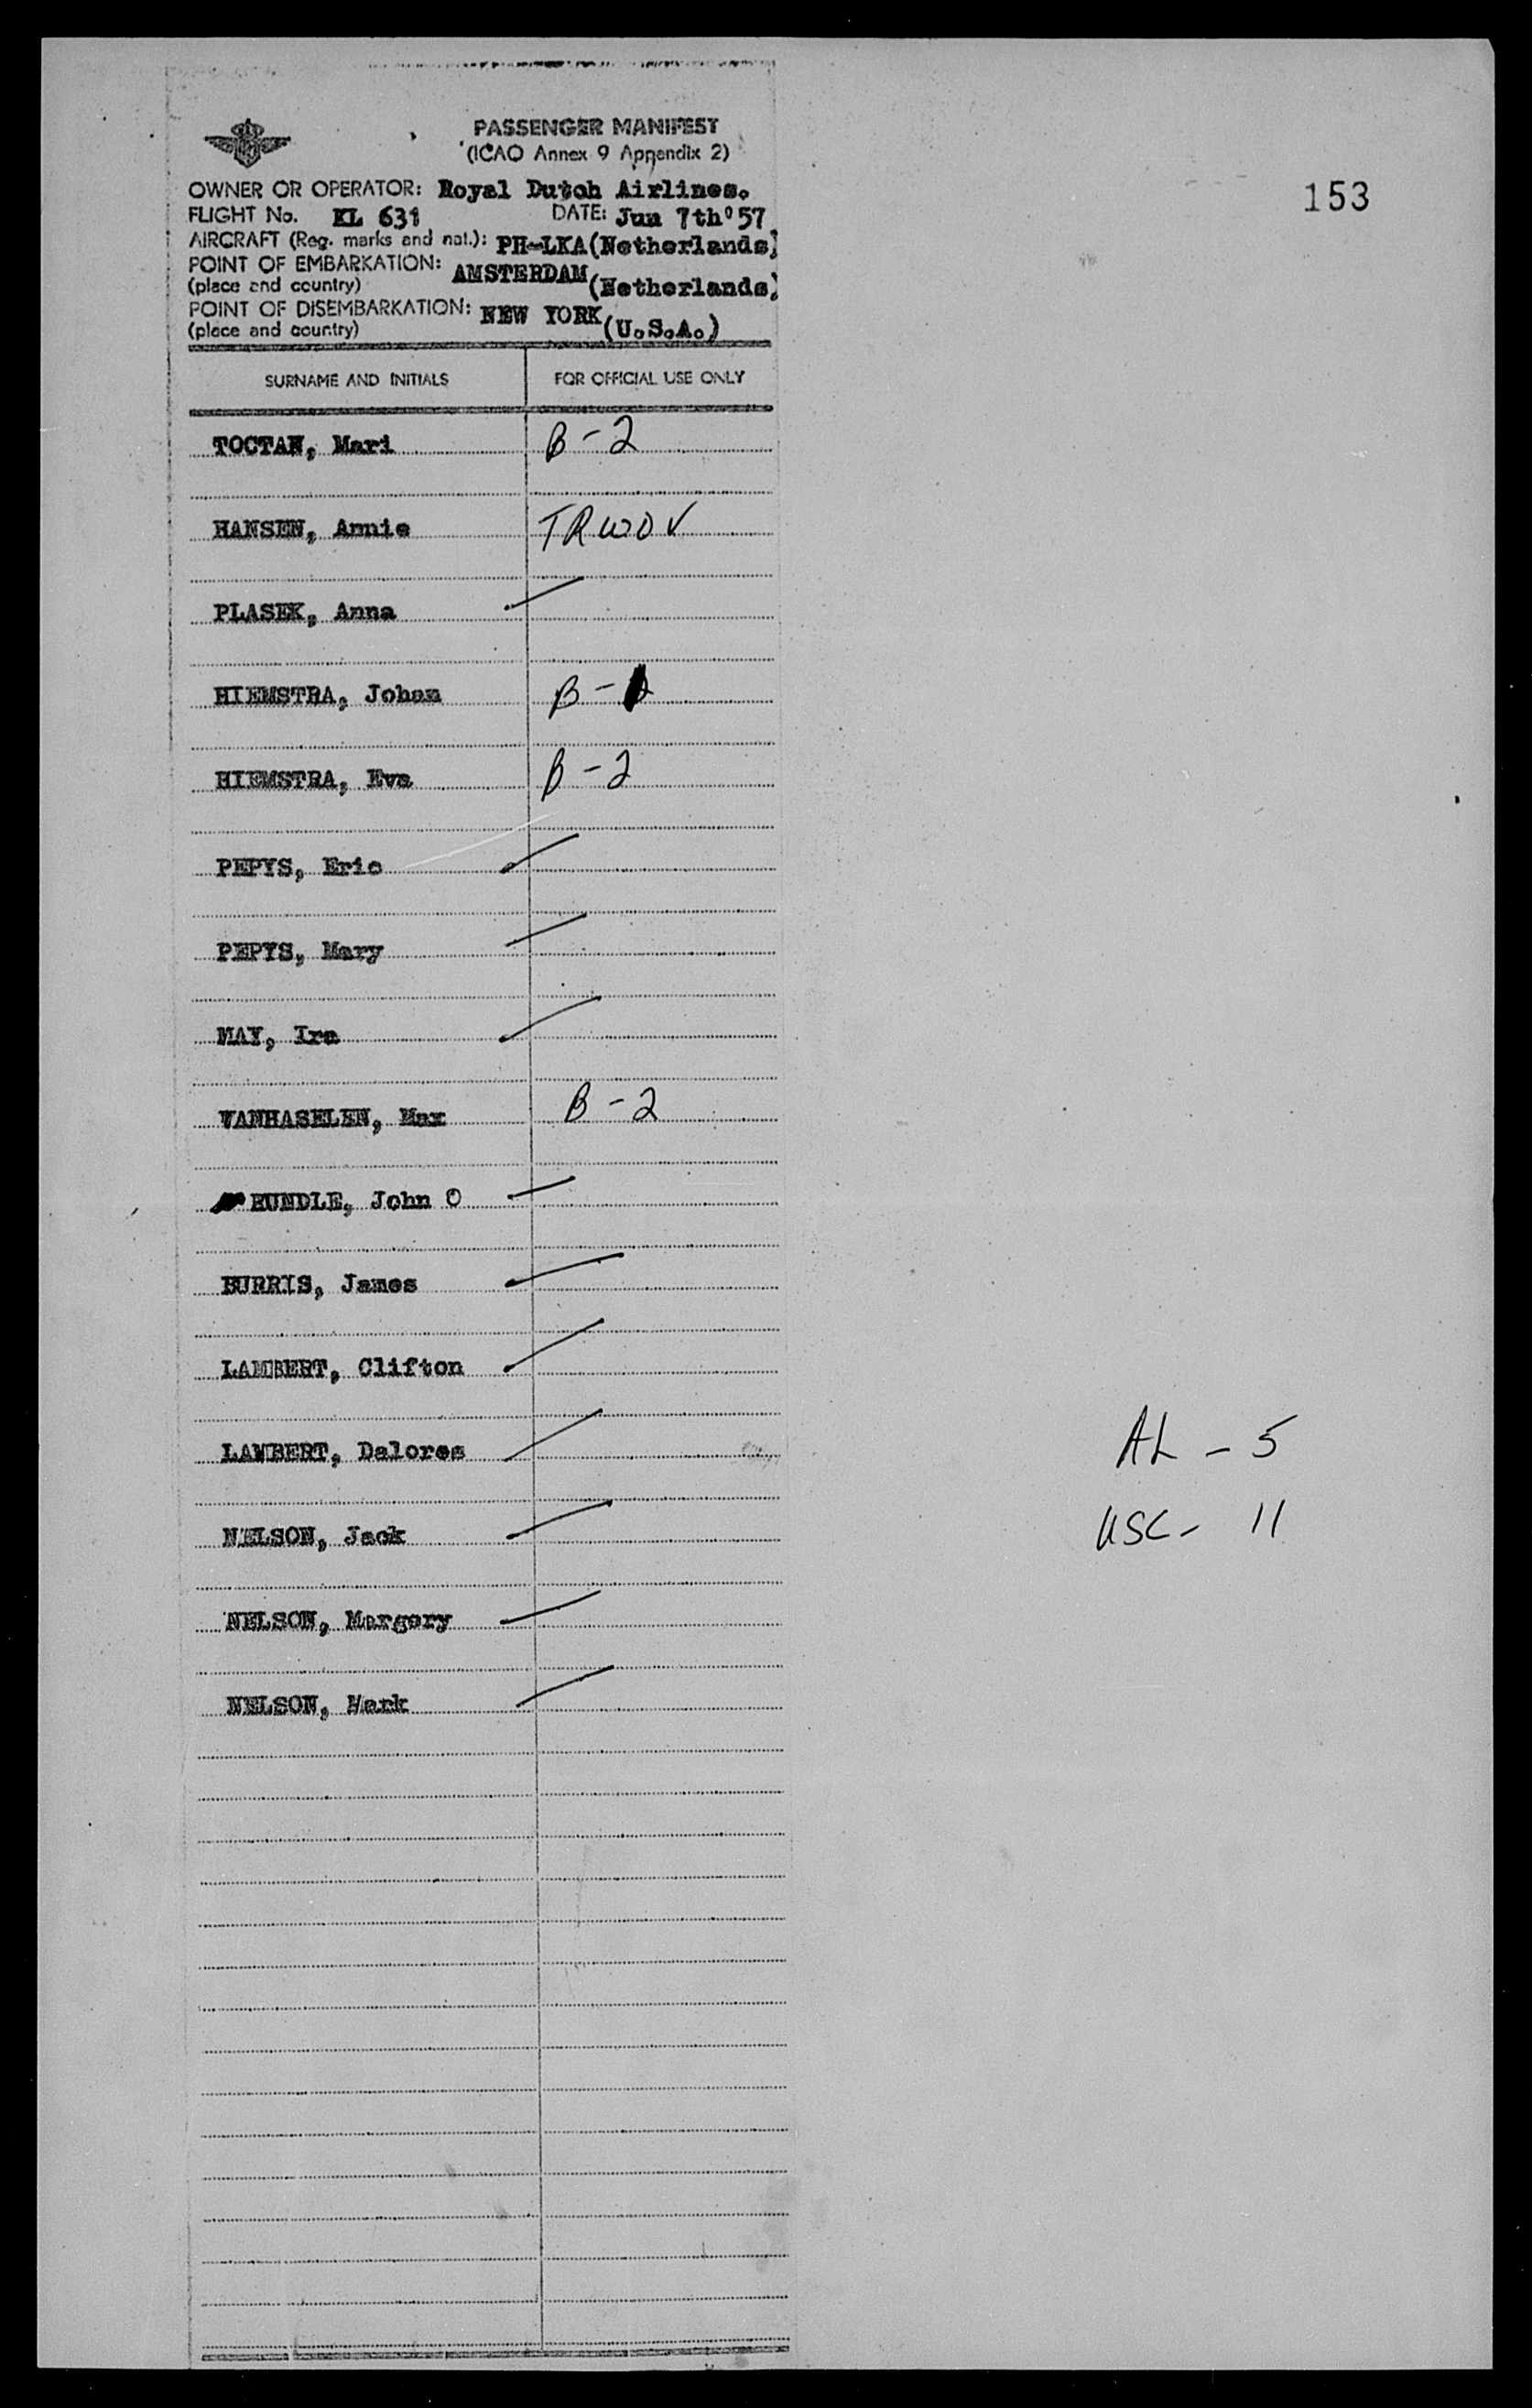 PASSENGER MANIFEST
(ICAO Annex 9 Appendix 2)
153
OWNER OR OPERATOR: Royal Dutch Airlines.
FLIGHT No. KL 631 DATE: Jun 7th°57
AIRCRAFT (Reg. marks and nat.): PH-LKA(Netherlands)
POINT OF EMBARKATION: AMSTERDAM(Netherlands)
(place and country)
POINT OF DISEMBARKATION: NEW YORK(U.S.A.)
(place and country)
SURNAME AND INITIALS FOR OFFICIAL USE ONLY
TOCTAN, Mari B-2
HANSEN, Annie TRWOV
PLASEK, Anna
HIEMSTRA, Johan B-
HIEMSTRA, Eva B-2
PEPYS, Eric
PEPYS, Mary
MAY, Ira
VANHASELEN, Max B-2
RUNDLE, John O
BURRIS, James
LAMBERT, Clifton
LAMBERT, Dalores
NELSON, Jack
NELSON, Margery
NELSON, Mark
AL - 5
USC - 11